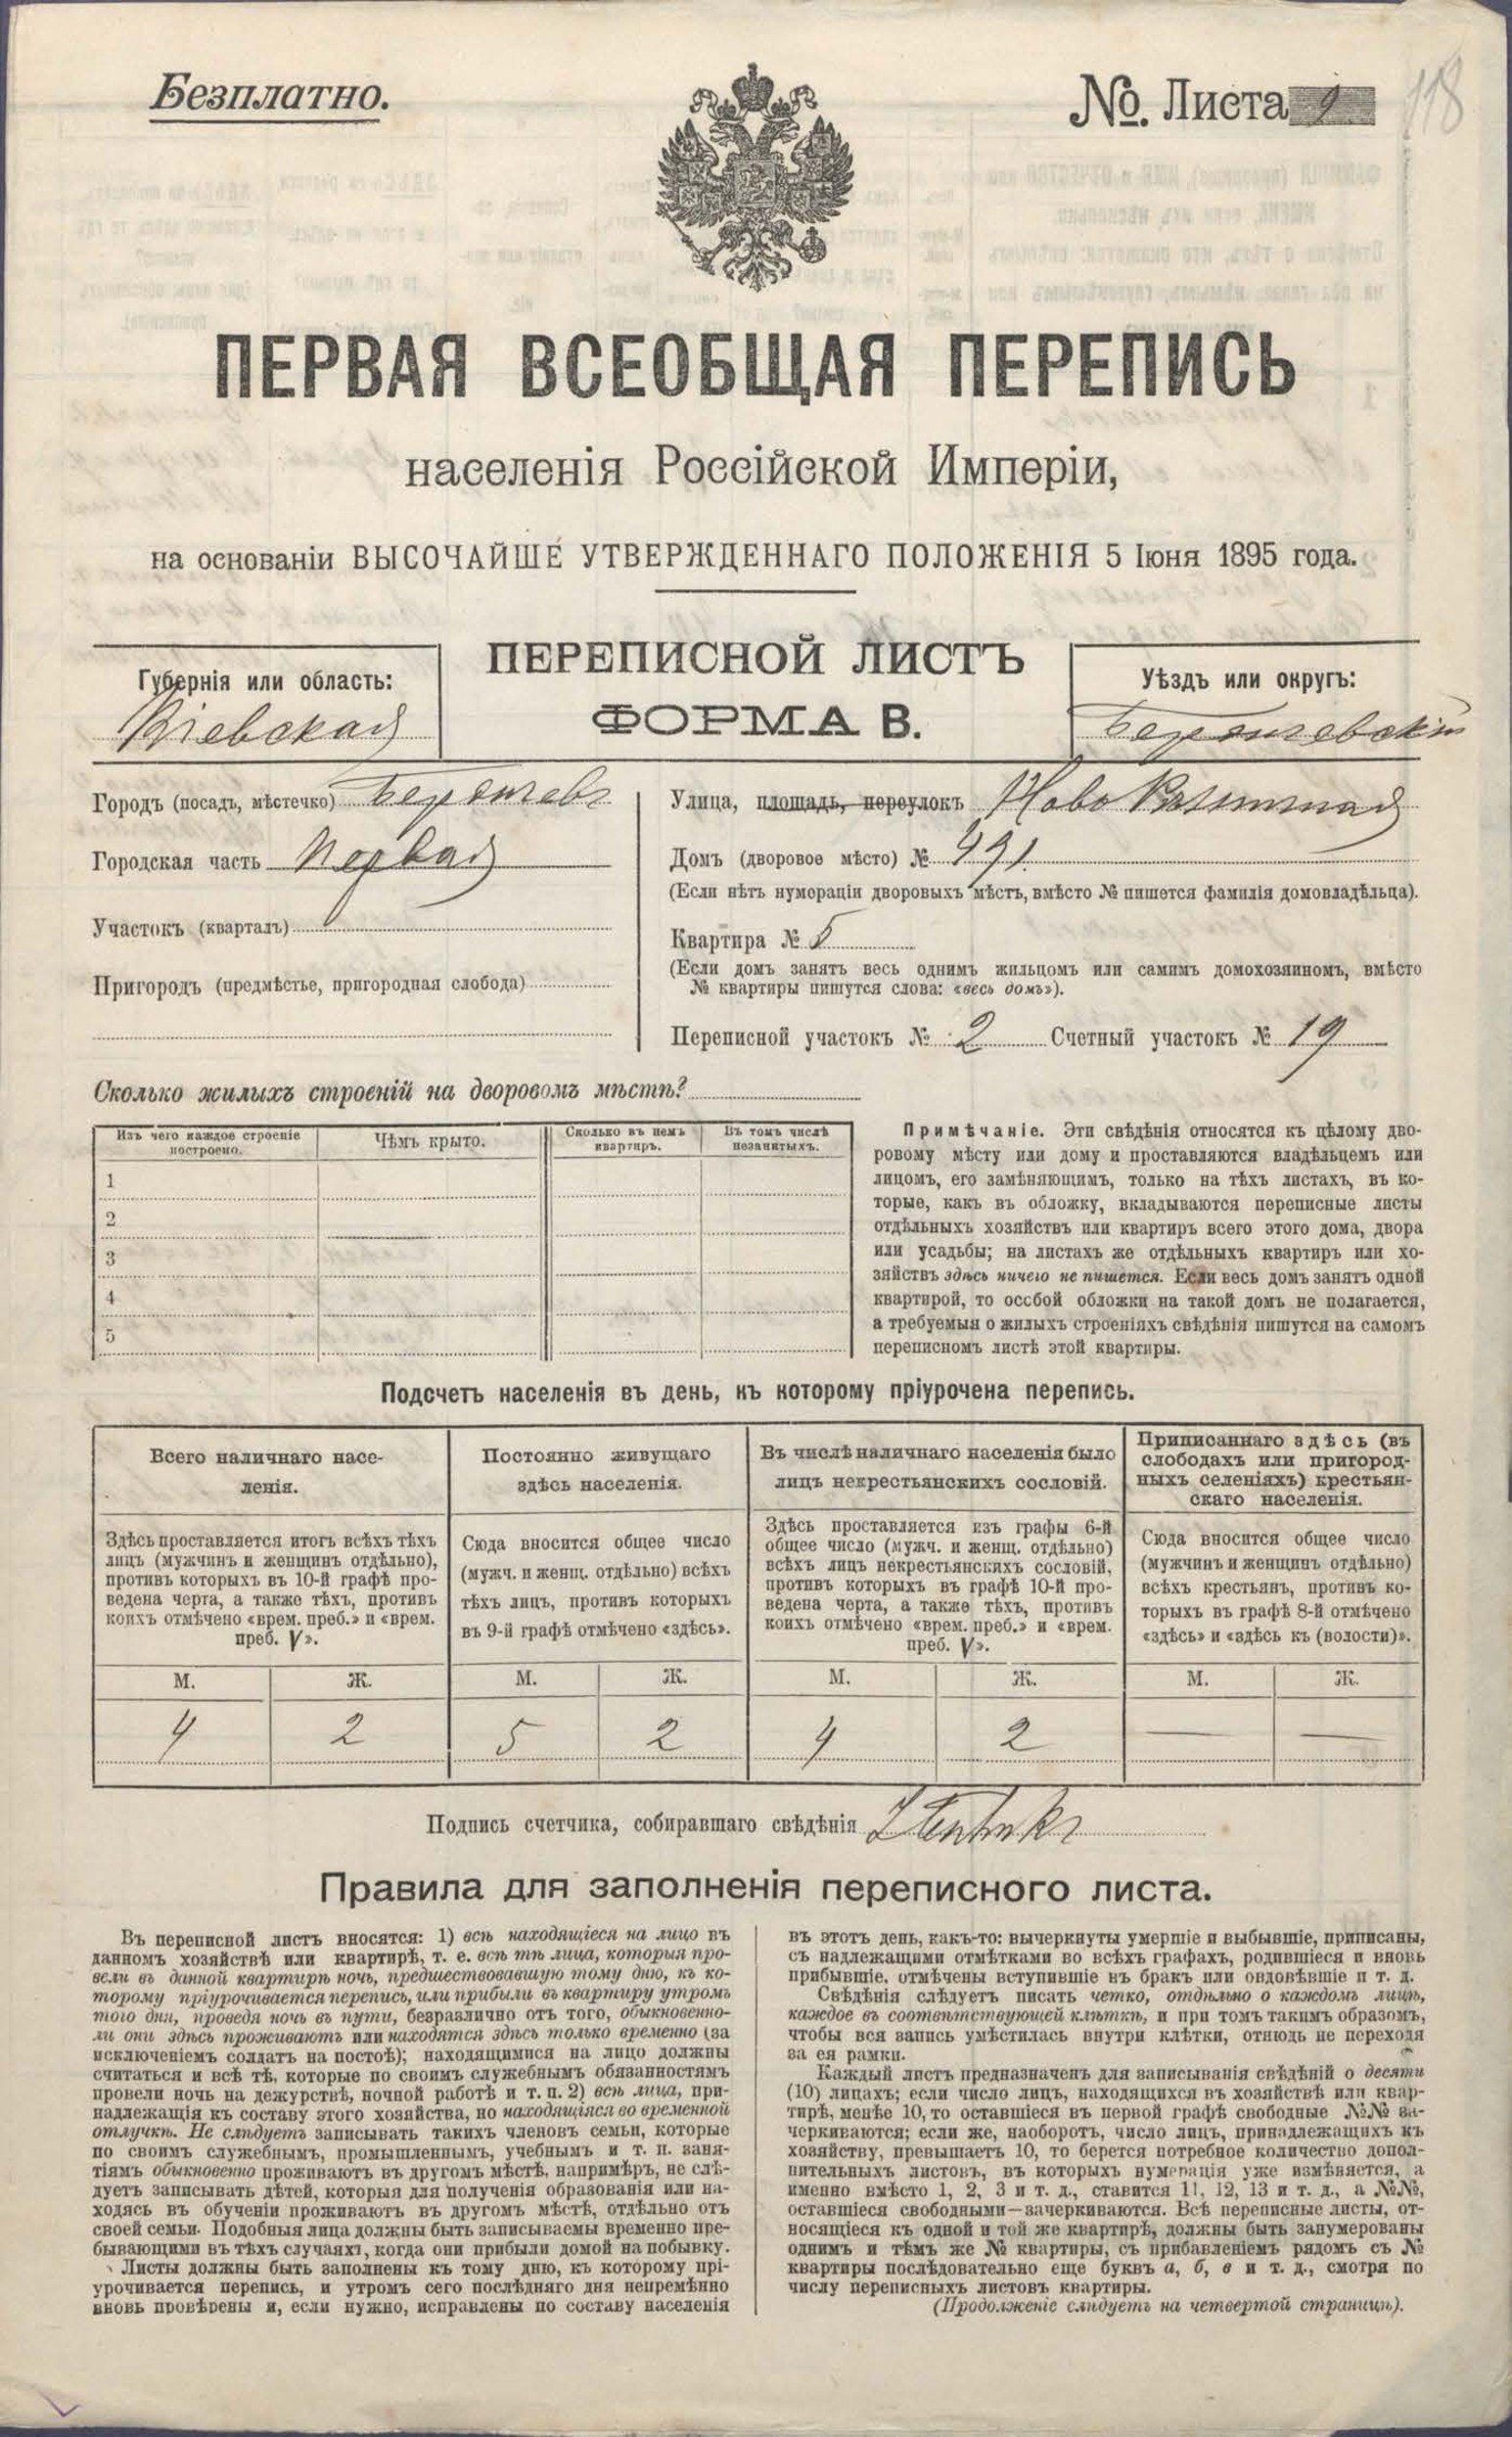 Безплатно.
№. Листа 9
118
ПЕРВАЯ ВСЕОБЩАЯ ПЕРЕПИСЬ
населенія Россійской Имперіи,
на основаніи ВЫСОЧАЙШЕ УТВЕРЖДЕННАГО ПОЛОЖЕНІЯ 5 Іюня 1895 года.
ПЕРЕПИСНОЙ ЛИСТЪ
ФОРМА В.
Губернія или область:
Кіевская
Уѣздъ или округъ:
Бердичевскій
Городъ (посадъ, мѣстечко) Бердичевъ
Городская часть Первая
Участокъ (кварталъ)
Пригородъ (предмѣстье, пригородная слобода)
Улица, площадь, переулокъ Ново
Домъ (дворовое мѣсто) № 491
(Если нѣтъ нумораціи дворовыхъ мѣстъ, вмѣсто № пишется фамилія домовладѣльца).
Квартира № 5
(Если домъ занятъ весь однимъ жильцомъ или самимъ домохозяиномъ, вмѣсто
№ квартиры пишутся слова: «весь домъ»).
Переписной участокъ № 2 Счетный участокъ № 19
Сколько жилыхъ строеній на дворовомъ мѣстѣ?
Изъ чего каждое строеніе построено.
Чѣмъ крыто.
Сколько въ немъ квартиръ.
Въ томъ числѣ незанятыхъ.
1
2
3
4
5
Примѣчаніе. Эти свѣдѣнія относятся къ цѣлому дво-
ровому мѣсту или дому и проставляются владѣльцемъ или
лицомъ, его замѣняющимъ, только на тѣхъ листахъ, въ ко-
торые, какъ въ обложку, вкладываются переписные листы
отдѣльныхъ хозяйствъ или квартиръ всего этого дома, двора
или усадьбы; на листахъ же отдѣльныхъ квартиръ или хо-
зяйствъ здѣсь ничего не пишется. Если весь домъ занятъ одной
квартирой, то особой обложки на такой домъ не полагается,
а требуемыя о жилыхъ строеніяхъ свѣдѣнія пишутся на самомъ
переписномъ листѣ этой квартиры.
Подсчетъ населенія въ день, къ которому пріурочена перепись.
Всего наличнаго насе-
ленія.
Постоянно живущаго
здѣсь населенія.
Въ числѣ наличнаго населенія было
лицъ некрестьянскихъ сословій.
Приписаннаго здѣсь (въ
слободахъ или пригород-
ныхъ селеніяхъ) крестьян-
скаго населенія.
Здѣсь проставляется итогъ всѣхъ тѣхъ
лицъ (мужчинъ и женщинъ отдѣльно),
противъ которыхъ въ 10-й графѣ про-
ведена черта, а также тѣхъ, противъ
коихъ отмѣчено «врем. преб.» и «врем.
преб. V».
Сюда вносится общее число
(мужч. и женщ. отдѣльно) всѣхъ
тѣхъ лицъ, противъ которыхъ
въ 9-й графѣ отмѣчено «здѣсь».
Здѣсь проставляется изъ графы 6-й
общее число (мужч. и женщ. отдѣльно)
всѣхъ лицъ некрестьянскихъ сословій,
противъ которыхъ въ графѣ 10-й про-
ведена черта, а также тѣхъ, противъ
коихъ отмѣчено «врем. преб.» и «врем.
преб. V».
Сюда вносится общее число
(мужчинъ и женщинъ отдѣльно)
всѣхъ крестьянъ, противъ ко-
торыхъ въ графѣ 8-й отмѣчено
«здѣсь» и «здѣсь къ (волости)».
М. Ж. М. Ж. М. Ж. М. Ж.
4 2 5 2 4 2 — —
Подпись счетчика, собиравшаго свѣдѣнія
Правила для заполненія переписного листа.
Въ переписной листъ вносятся: 1) всѣ находящіеся на лицо въ
данномъ хозяйствѣ или квартирѣ, т. е. всѣ тѣ лица, которыя про-
вели въ данной квартирѣ ночь, предшествовавшую тому дню, къ ко-
торому пріурочивается перепись, или прибыли въ квартиру утромъ
того дня, проведя ночь въ пути, безразлично отъ того, обыкновенно-
ли они здѣсь проживаютъ или находятся здѣсь только временно (за
исключеніемъ солдатъ на постоѣ); находящимися на лицо должны
считаться и всѣ тѣ, которые по своимъ служебнымъ обязанностямъ
провели ночь на дежурствѣ, ночной работѣ и т. п. 2) всѣ лица, при-
надлежащія къ составу этого хозяйства, но находящіяся во временной
отлучкѣ. Не слѣдуетъ записывать такихъ членовъ семьи, которые
по своимъ служебнымъ, промышленнымъ, учебнымъ и т. п. заня-
тіямъ обыкновенно проживаютъ въ другомъ мѣстѣ, напримѣръ, не слѣ-
дуетъ записывать дѣтей, которыя для полученія образованія или на-
ходясь въ обученіи проживаютъ въ другомъ мѣстѣ, отдѣльно отъ
своей семьи. Подобныя лица должны быть записываемы временно пре-
бывающими въ тѣхъ случаяхъ, когда они прибыли домой на побывку.
Листы должны быть заполнены къ тому дню, къ которому прі-
урочивается перепись, и утромъ сего послѣдняго дня непремѣнно
вновь провѣрены и, если нужно, исправлены по составу населенія
въ этотъ день, какъ-то: вычеркнуты умершіе и выбывшіе, приписаны,
съ надлежащими отмѣтками во всѣхъ графахъ, родившіеся и вновь
прибывшіе, отмѣчены вступившіе въ бракъ или овдовѣвшіе и т. д.
Свѣдѣнія слѣдуетъ писать четко, отдѣльно о каждомъ лицѣ,
каждое въ соотвѣтствующей клѣткѣ, и при томъ такимъ образомъ,
чтобы вся запись умѣстилась внутри клѣтки, отнюдь не переходя
за ея рамки.
Каждый листъ предназначенъ для записыванія свѣдѣній о десяти
(10) лицахъ; если число лицъ, находящихся въ хозяйствѣ или квар-
тирѣ, менѣе 10, то оставшіеся въ первой графѣ свободные №№ за-
черкиваются; если же, наоборотъ, число лицъ, принадлежащихъ къ
хозяйству, превышаетъ 10, то берется потребное количество допол-
нительныхъ листовъ, въ которыхъ нумерація уже измѣняется, а
именно вмѣсто 1, 2, 3 и т. д., ставится 11, 12, 13 и т. д., а №№,
оставшіеся свободными—зачеркиваются. Всѣ переписные листы, от-
носящіеся къ одной и той же квартирѣ, должны быть занумерованы
однимъ и тѣмъ же № квартиры, съ прибавленіемъ рядомъ съ №
квартиры послѣдовательно еще буквъ а, б, в и т. д., смотря по
числу переписныхъ листовъ квартиры.
(Продолженіе слѣдуетъ на четвертой страницѣ).